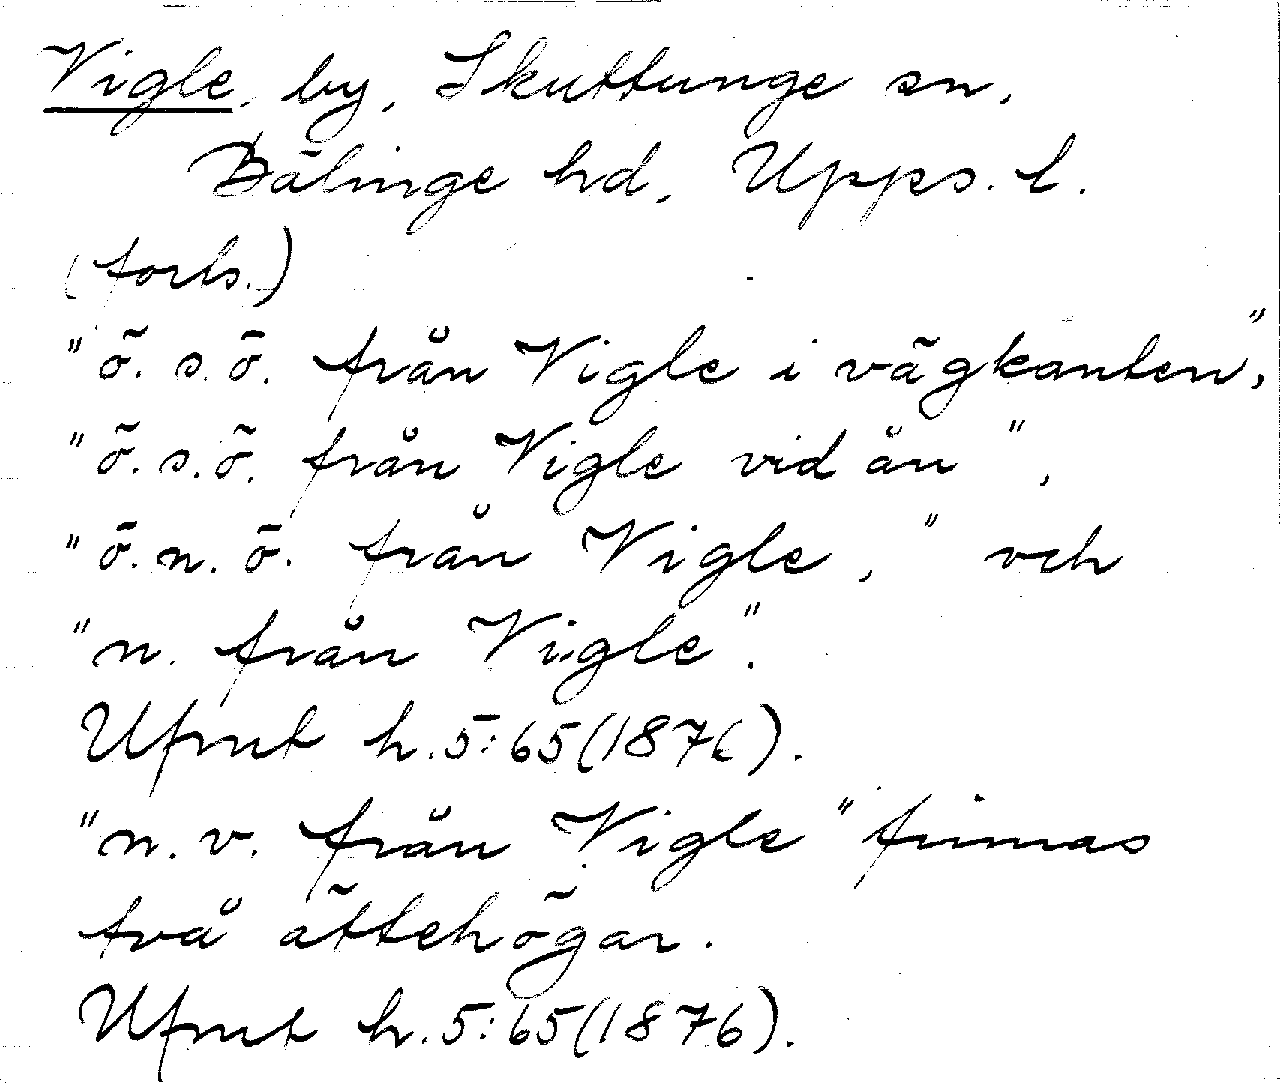 Vigle, by, Skuttunge sn,
Bälinge hd, Upps. l.
(forts.)
"ö. s. ö. från Vigle i vägkanten",
"ö. s. ö. från Vigle vid ån",
"ö. n. ö. från Vigle," och
"n. från Vigle".
Ufmt h. 5:65 (1876).
"n. v. från Vigle" finnas
två ättehögar.
Ufmt h. 5:65 (1876).